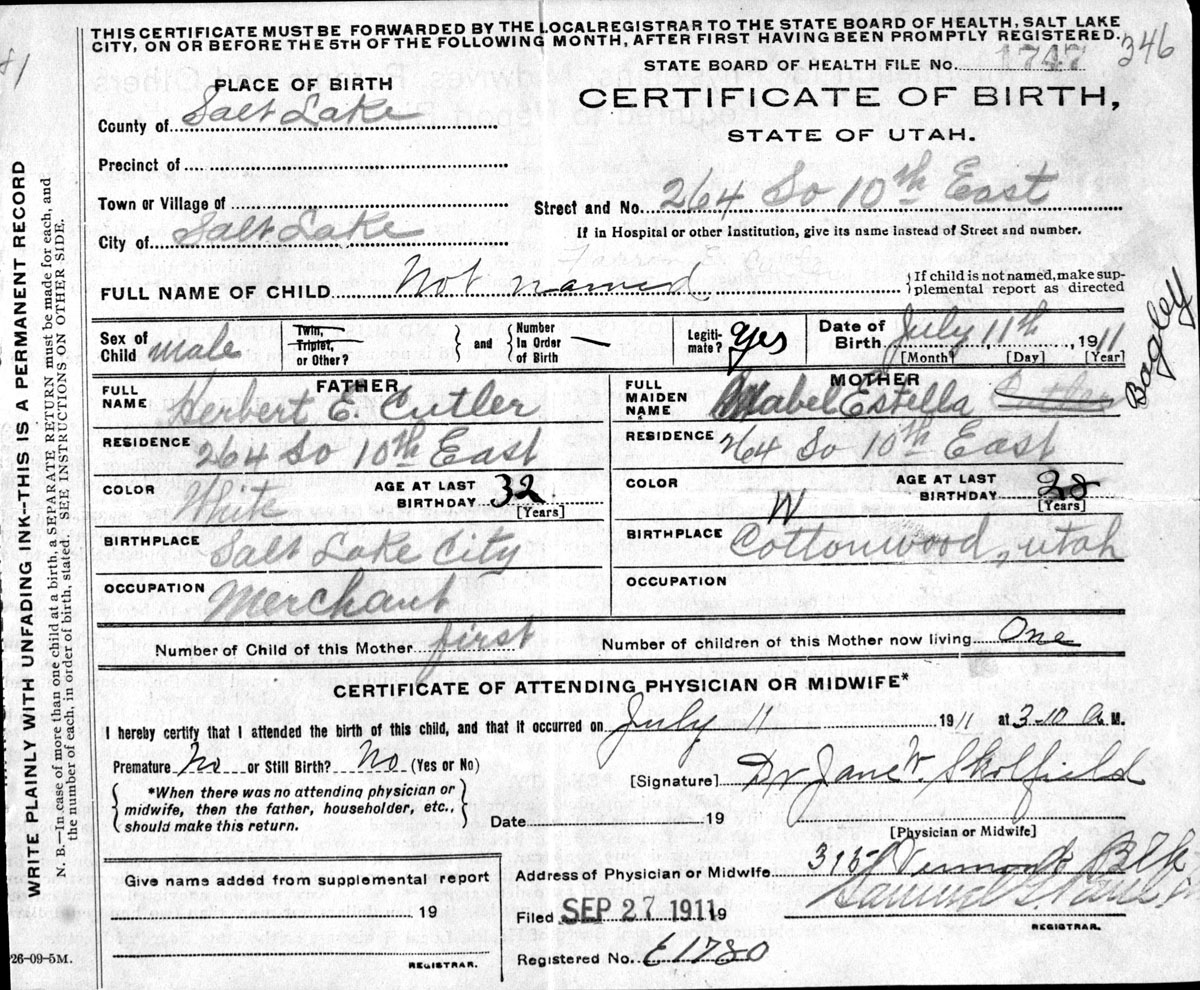 THIS CERTIFICATE MUST BE FORWARDED BY THE LOCAL REGISTRAR TO THE STATE BOARD OF HEALTH, SALT LAKE
CITY, ON OR BEFORE THE 5TH OF THE FOLLOWING MONTH, AFTER FIRST HAVING BEEN PROMPTLY REGISTERED.
346
STATE BOARD OF HEALTH FILE NO. 1747
PLACE OF BIRTH
CERTIFICATE OF BIRTH,
STATE OF UTAH.
County of Salt Lake
Precinct of
Town or Village of
Street and No. 264 So 10th East
City of Salt Lake
If in Hospital or other Institution, give its name instead of Street and number.
FULL NAME OF CHILD Not named
If child is not named, make sup-
plemental report as directed
Sex of Child male
Twin, Triplet, or Other?
and
Number In Order of Birth —
Legiti-mate? Yes
Date of Birth July 11th, 1911
[Month] [Day] [Year]
FATHER
FULL NAME Herbert E. Cutler
RESIDENCE 264 So 10th East
COLOR White
AGE AT LAST BIRTHDAY 32
[Years]
BIRTHPLACE Salt Lake City
OCCUPATION Merchant
MOTHER
FULL MAIDEN NAME Mabel Estella Cutler
Bagley
RESIDENCE 264 So 10th East
COLOR W
AGE AT LAST BIRTHDAY
[Years]
BIRTHPLACE Cottonwood, Utah
OCCUPATION
Number of Child of this Mother first
Number of children of this Mother now living One
CERTIFICATE OF ATTENDING PHYSICIAN OR MIDWIFE*
I hereby certify that I attended the birth of this child, and that it occurred on July 11 1911 at 3-10 A. M.
Premature No or Still Birth? No (Yes or No)
[Signature] Dr Jane W. Skolfield
*When there was no attending physician or
midwife, then the father, householder, etc.,
should make this return.
Date 19
[Physician or Midwife]
Address of Physician or Midwife Vermont Blk
Give name added from supplemental report
19
REGISTRAR.
Filed SEP 27 1911 19
Samuel G.
REGISTRAR.
Registered No. E1780
26-09-5M.
WRITE PLAINLY WITH UNFADING INK--THIS IS A PERMANENT RECORD
N. B.—In case of more than one child at a birth, a SEPARATE RETURN must be made for each, and
the number of each, in order of birth, stated. SEE INSTRUCTIONS ON OTHER SIDE.